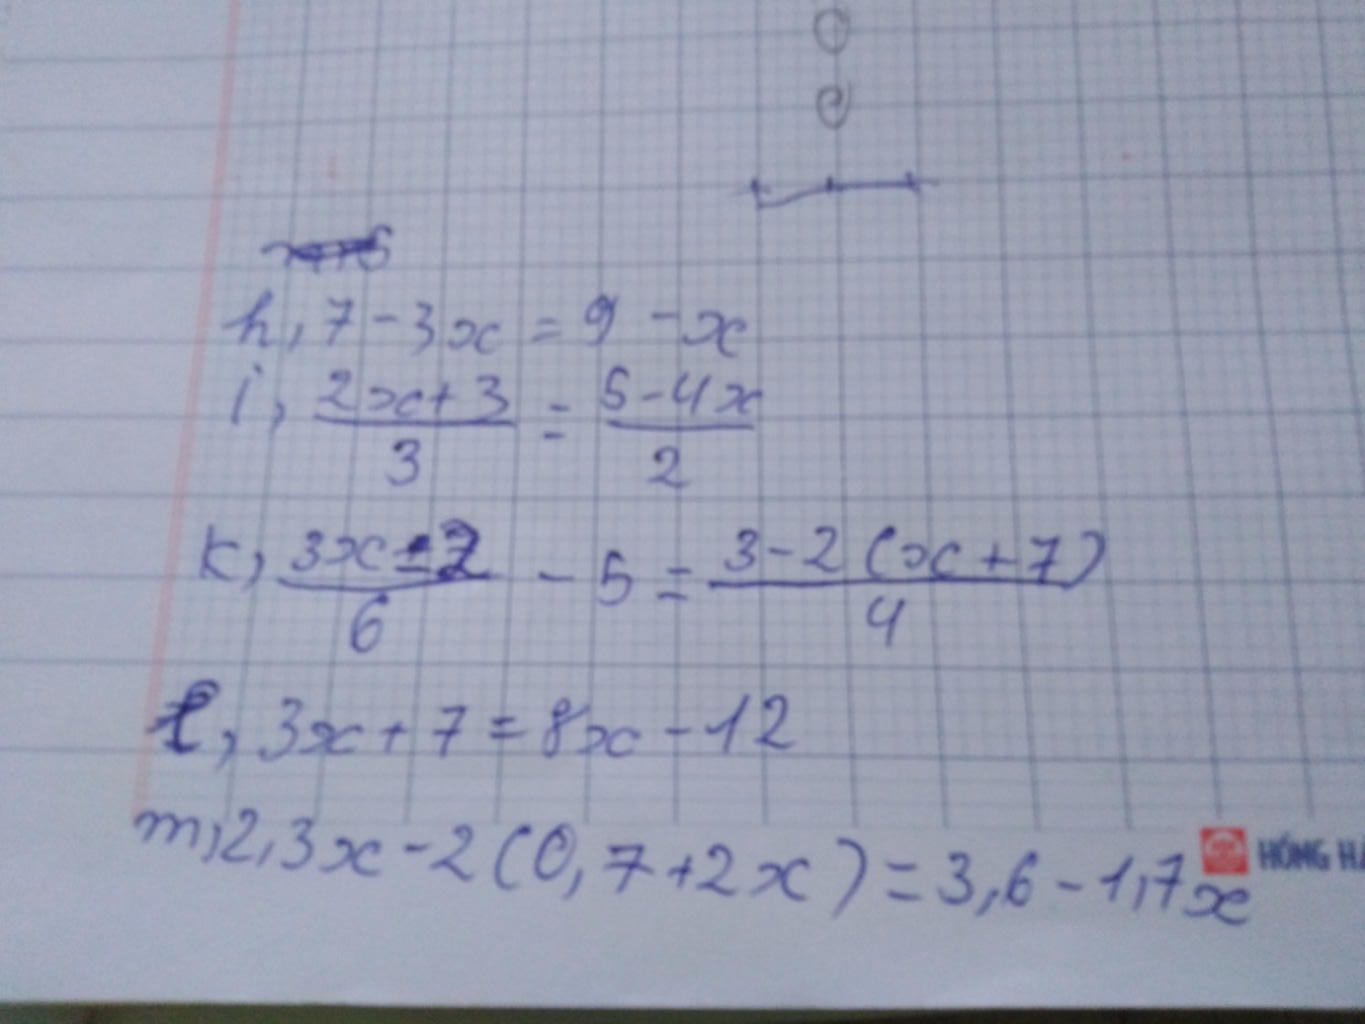 h, 7 - 3x = 9 - x
i, (2x + 3)/3 = (5 - 4x)/2
k, (3x - 2)/6 - 5 = (3 - 2(x + 7))/4
l, 3x + 7 = 8x - 12
m, 2,3x - 2(0,7 + 2x) = 3,6 - 1,7x
HỒNG HÀ